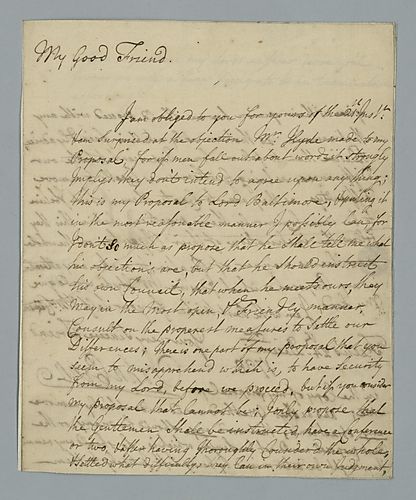 My Good Friend.
I am obliged to you for yours of the 21st Inst.
I am Surprized at the objection Mr. Hyde made to my
Proposal, for if men fall out about words it Strongly
Implys they don't intend to agree upon any thing;
this is my Proposal to Lord Baltimore, by puting it
in the most reasonable manner I possibly Can, for
I don't So much as propose that he Shall tell me what
his objections are, but that he Should instruct
his own Council, that when he meets ours, they
may in the most open & Friendly manner,
Consult on the properest measures to Settle our
Differences; there is one part of my proposal that you
seem to misapprehend which is, to have Security
from my Lord, before we proceed, but if you consider
my Proposal that Cannot be; I only propose that
the Gentlemen Shall be instructed, have a Conference
or two, & after having thoroughly Considered the whole,
& Setled what difficultys they Can in their own Judgment,